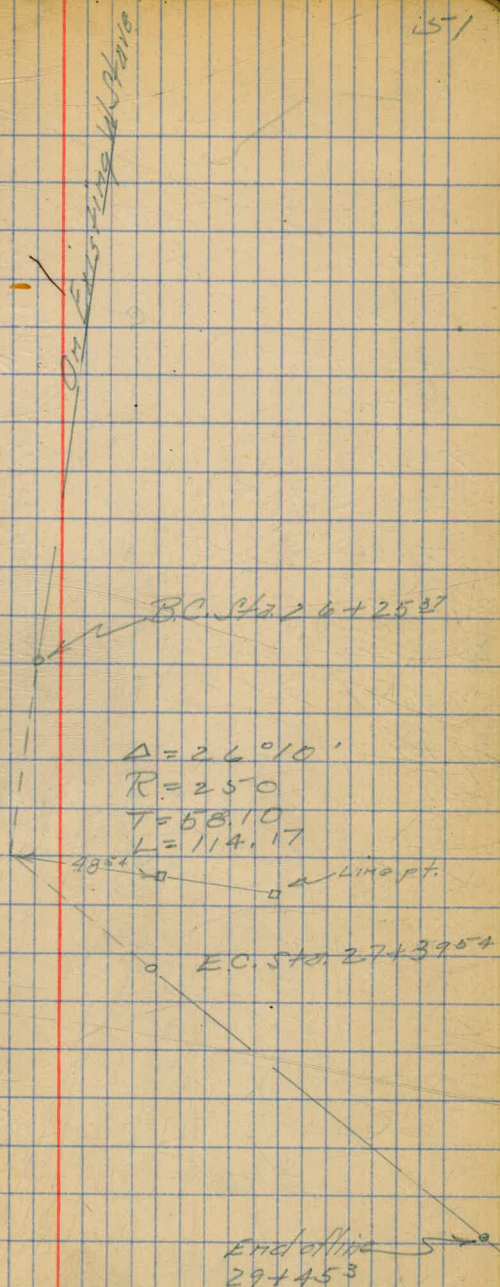 151
On Existing W. Stave
B.C. Sta. 26+25 37
Δ = 26°10'
R = 250
T = 58.10
L = 114.17
48 54
Line pt.
E.C. Sta. 27+39 54
End of line
29+45 3